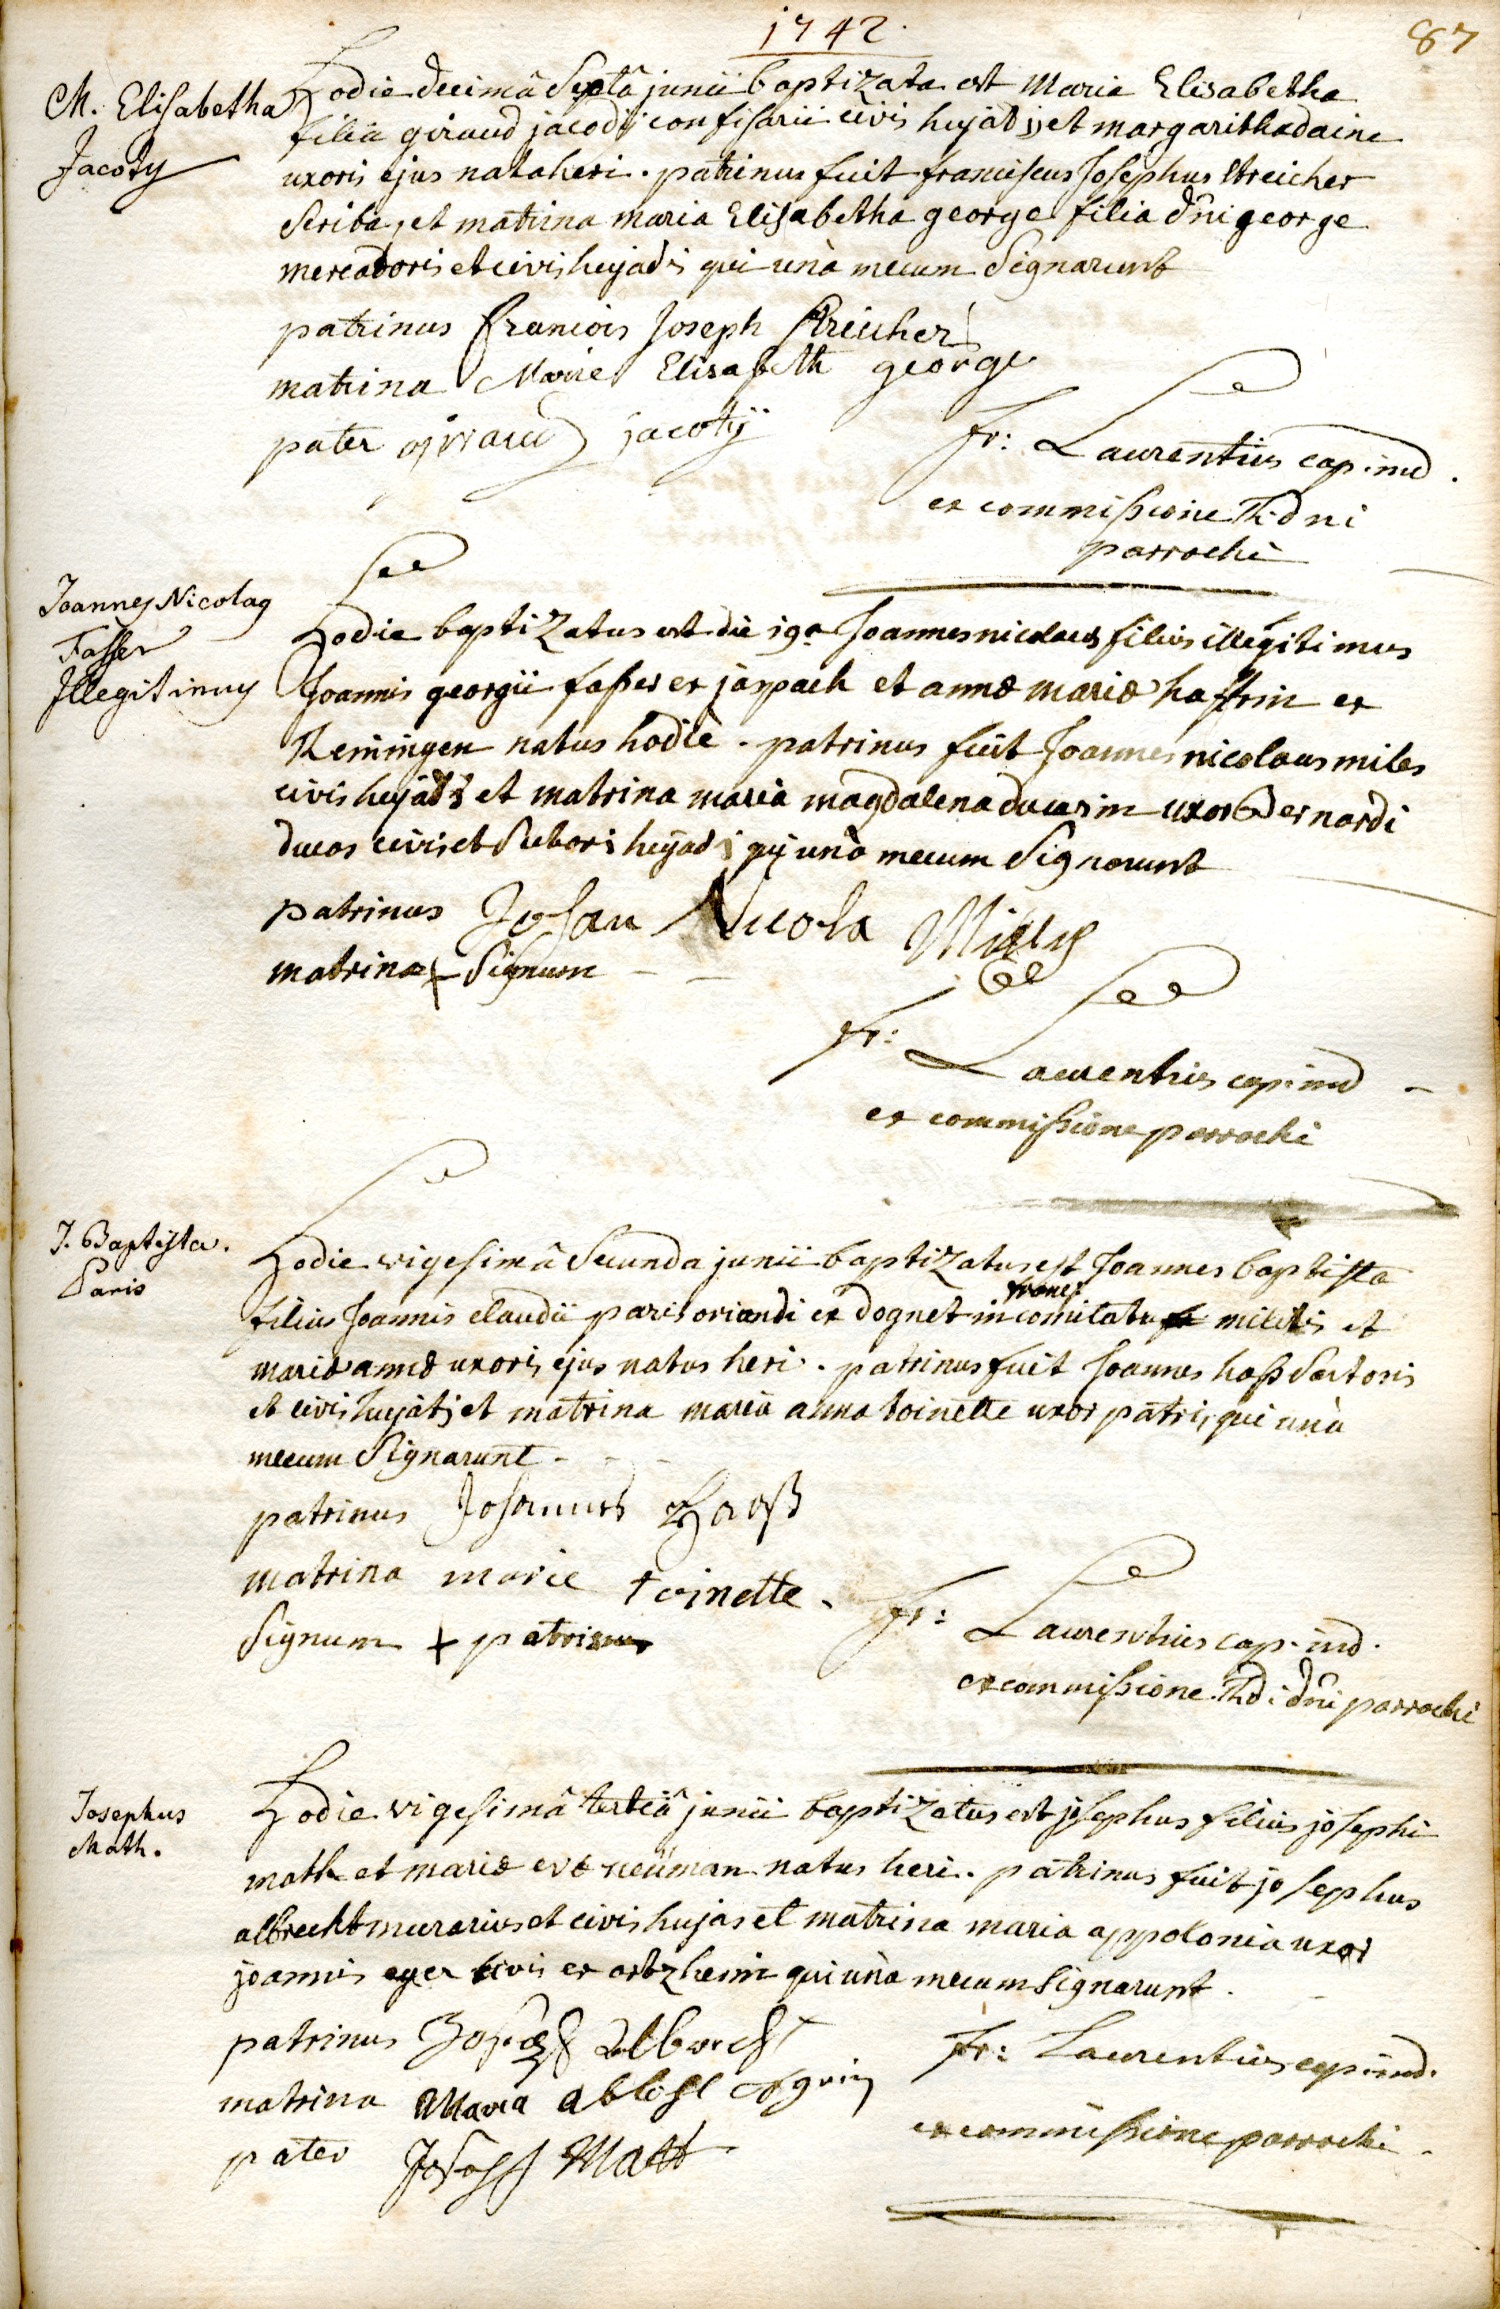 1742.
87
M. Elisabetha
Jacoty
Hodie decimâ Septâ junii baptizata est Maria Elisabetha
filia giraud jacodi confisarii civis hujatis et margaritha daine
uxoris ejus nata heri. patrinus fuit franciscus Josephus Streicher
Scriba, et matrina maria Elisabetha george filia dni george
mercatoris et civis hujadis qui unà mecum Signarunt
patrinus francois Joseph Streicher
matrina Marie Elisabeth george
pater giraud jacotÿ
fr: Laurentius cap. ind.
ex commissione R. dni
parrochi
Joannes Nicolaus
Fasser
Illegitimus
Hodie baptizatus est die 19a Joannes nicolaus filius illegitimus
Joannis georgii fasser ex jaspach et annæ mariæ haffrin ex
Reiningen natus hodie. patrinus fuit Joannes nicolaus miles
civis hujadis et matrina maria magdalena ducasin uxor Bernardi
ducas civis et Sutoris hujadis qui unà mecum Signarunt
patrinus Johan Nicola
matrina + Signum
fr: Laurentius cap. ind
ex commissione parrochi
J. Baptista.
Paris
Hodie vigesimâ Secunda junii baptizatus est Joannes baptista
filius Joannis claudii paris oriundi ex dognet in comitatu militis et
mariæ annæ uxoris ejus natus heri. patrinus fuit Joannes hass Sartoris
et civis hujatis et matrina maria anna toinette uxor patris, qui unà
mecum Signarunt
patrinus Johannes Haass
matrina marie toinette.
Signum + patrinus
fr: Laurentius cap. ind.
ex commissione Rd: dni parrochi
Josephus
Math.
Hodie vigesimâ tertiâ junii baptizatus est josephus filius josephi
math et mariæ evæ neüman natus heri. patrinus fuit josephus
albrecht murarius et civis hujas et matrina maria appolonia uxor
joannis eger civis ex artzheim qui unà mecum Signarunt.
patrinus Joseph Albrecht
matrina Maria
pater Joseph Matt
fr: Laurentius cap. ind.
ex commissione parrochi